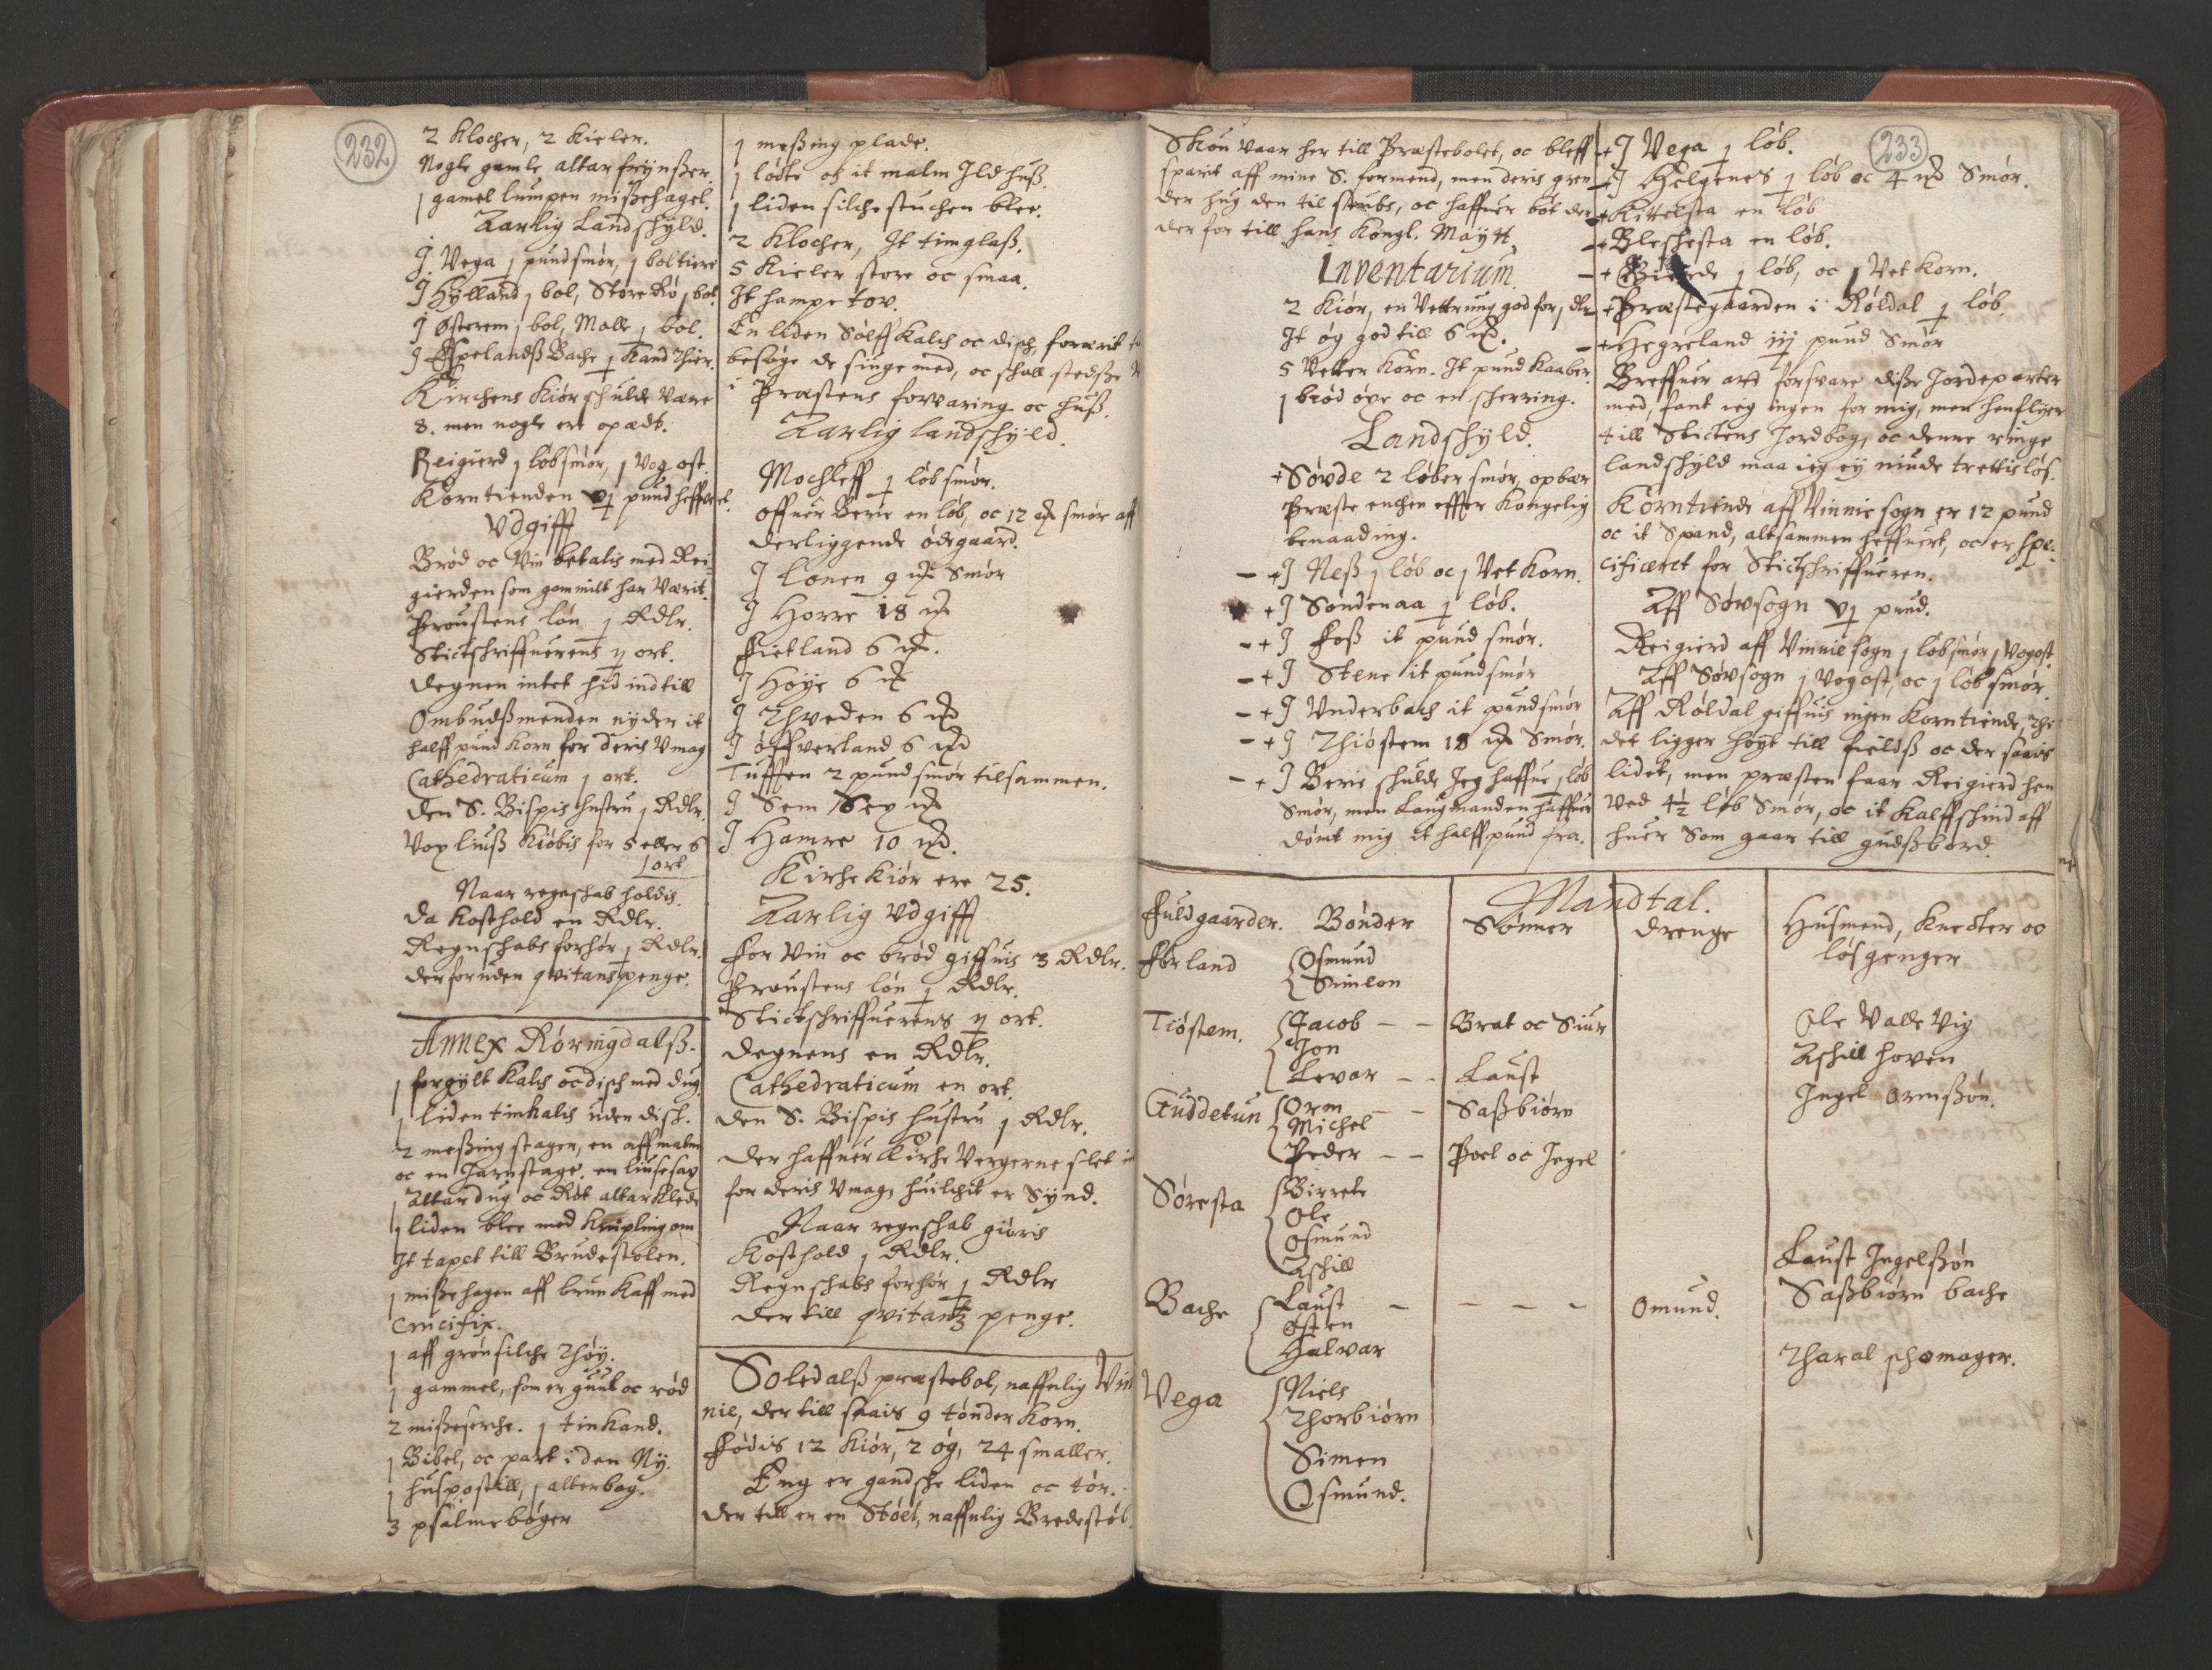 232
2 Klocher, 2 Kieler.
Nogle gamle altar frÿnßer.
1 gamel lumpen mißehagel.
Aarlig Landschÿld.
J. Vega 1 pund smør, 1 boltiere
J Hÿlland 1 bol, Store Rø 1 bol
J Østerem 1 bol, Malle 1 bol.
J Espelandß Bache 1 Kand Thier.
Kirchens Kiør schulde være
8. men nogle ere opædt.
Reigierd 1 løb smør, 1 Vog ost.
Korntienden vj pund heffvert.
Vdgifft
Brød oc Vin betalis med Rei-
gierden som gammilt har værit.
Proustens løn 1 Rdlr.
Stictschriffuerens ij ort.
Degnen intet hid indtill
Ombudßmenden nÿder it
halff pund Korn for deris Vmag
Cathedraticum 1 ort.
Den S. Bispis hustru 1 Rdlr.
Vox liuß Kiøbis for 5 eller 6
ort
Naar regnschab holdis.
Da Kosthold en Rdlr.
Regnschabs forhør 1 Rdlr.
Derforuden qvitans penge.
Annex Røringdalß.
1 forgÿlt Kalch oc disch med dug
1 liden tinkalch uden disch.
2 meßing stager, en aff malm
oc en Jarnstage. en liusesax
1 Altardug oc Røt altar Klede
1 liden blee med Knipling om
It tapet till Brudestolen.
1 mißehagen aff brun Kaff med
Crucifix.
1 aff grøn silche Thøÿ.
1 gammel, som er guul oc rød
2 mißeserche. 1 tinkand.
1 Bibel, oc part i den Nÿ.
1 huspostill, 1 alterbog.
3 psalmebøger
1 meßing plade.
1 lødte oc it malm Ildhuß.
1 liden silche stuchen blee.
2 Klocher, It timglaß.
5 Kieler store oc smaa.
It hampe tov.
En liden Sølff Kalch oc disch, forærit
besøge de siuge med, oc schall stedße
i Præstens forvaring oc huß.
Aarlig landschÿld.
Mochleff 1 løb smør.
Offuer Berie en løb, oc 12 mr smør aff
derliggende ødegaard.
J Lonen 9 mr Smør
J Horre 18 mr
Fietland 6 mr.
J Høÿe 6 mr
J Thveden 6 mr
J Øffverland 6 mr
Tufften 2 pund smør tilsammen.
J Sem Sex mr
J Hamre 10 mr.
Kirche Kiør ere 25.
Aarlig Vdgifft
For Vin oc brød giffuis 3 Rdlr.
Proustens løn 1 Rdlr.
Stictschriffuerens ij ort.
Degnens en Rdlr.
Cathedraticum en ort.
Den S. Bispis hustru 1 Rdlr.
Der haffuer Kirche Vergerne slet
for deris Vmag, huilchit er Sÿnd.
Naar regnschab giøris
Kosthold 1 Rdlr.
Regnschabs forhør 1 Rdlr
Der till qvitantz penge.
Soledalß præstebol, naffnlig Vin
nie, der till saais 9 tønder Korn.
Fødis 12 Kiør, 2 øg, 24 smaller.
Eng er gandsche liden oc tør.
Der till er en Støel, naffnlig Bredestøl.
233
Skou vaar her till Præstebolet, oc bleff
sparit aff mine S. formend, men deris gren
der hug den til stubs, oc haffuer bøt
der for till hans Kongl. Maÿtt,
Inventarium.
2 Kiør, en Vettrung god for 1 dlr
It øg god till 6 mr.
5 Vetter Korn. It pund Kaaber.
1 brød øxe oc en scherring.
Landschÿld.
+ Søvde 2 løber smør, opbær
Præste enchen effter Kongelig
benaading.
- + J Neß 1 løb oc 1 Vet Korn.
+ J Sandenaa 1 løb.
- + J Foß it pund smør.
- + J Stene it pund smør
- + J Vnderbach it pund smør
- + J Thiøstem 18 mr Smør.
- + J Berie schulde Jeg haffue 1 løb
Smør, men Laugmanden haffuer
dømt mig it halff pund fra.
+ J Vega 1 løb.
+ J Helgenes 1 løb oc 4 mr Smør.
+ Kittelsta en løb
+ Bleschesta en løb.
- + 1 løb, oc 1 Vet Korn.
+ Præstegaarden i Røldal 1 løb.
- + Hegreland iij pund Smør
Breffuer att forsvare diße Jordeparter
med, fant ieg ingen for mig, men henflÿer
till Stictens Jordbog, oc denne ringe
landschÿld maa ieg eÿ niude trettisløs.
Korntiende aff Vinnie sogn er 12 pund
oc it Spand, altsammen heffuert, oc er spe-
cificeret for Stictschriffueren.
Aff Søvsogn vj pund.
Reigierd aff Vinnie sogn 1 løb smør 1 Vog ost
Aff Søvsogn 1 Vog ost, oc 1 løb smør.
Aff Røldal giffuis ingen Korntiende, Thi
det ligger høÿt till fieldß oc der saais
lidet, men præsten faar Reigierd hen
ved 4½ løb Smør, oc it Kalffschind aff
huer Som gaar till gudßbord.
Mandtal.
Fuldgaarder. Bønder Sønner Drenge Husmend, Knecter oc
løsgenger
Førland Osmund
Simeon
Tiøstem. Jacob - - Brat oc Siur Ole Valle Vig
Jon Aschill hoven
Levar - - Laust Ingel Ormßøn.
Guddetun Orm - - Saßbiørn
Michel
Peder - - Poel oc Ingel
Søresta Birrete
Ole
Osmund Laust Ingelßøn
Aschill
Bache Laust - - - - Omund. Saßbiørn bache
Østen
Halvar Tharal schomager.
Vega Niels
Thorbiørn
Simen
Osmund.